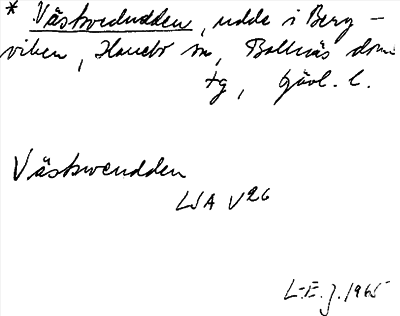 * Väskvedudden, udde i Berg-
viken, Hanebo sn, Bollnäs doms
tg, Gävl. l.
Väskweudden
LSA V26
L-E. J. 1965